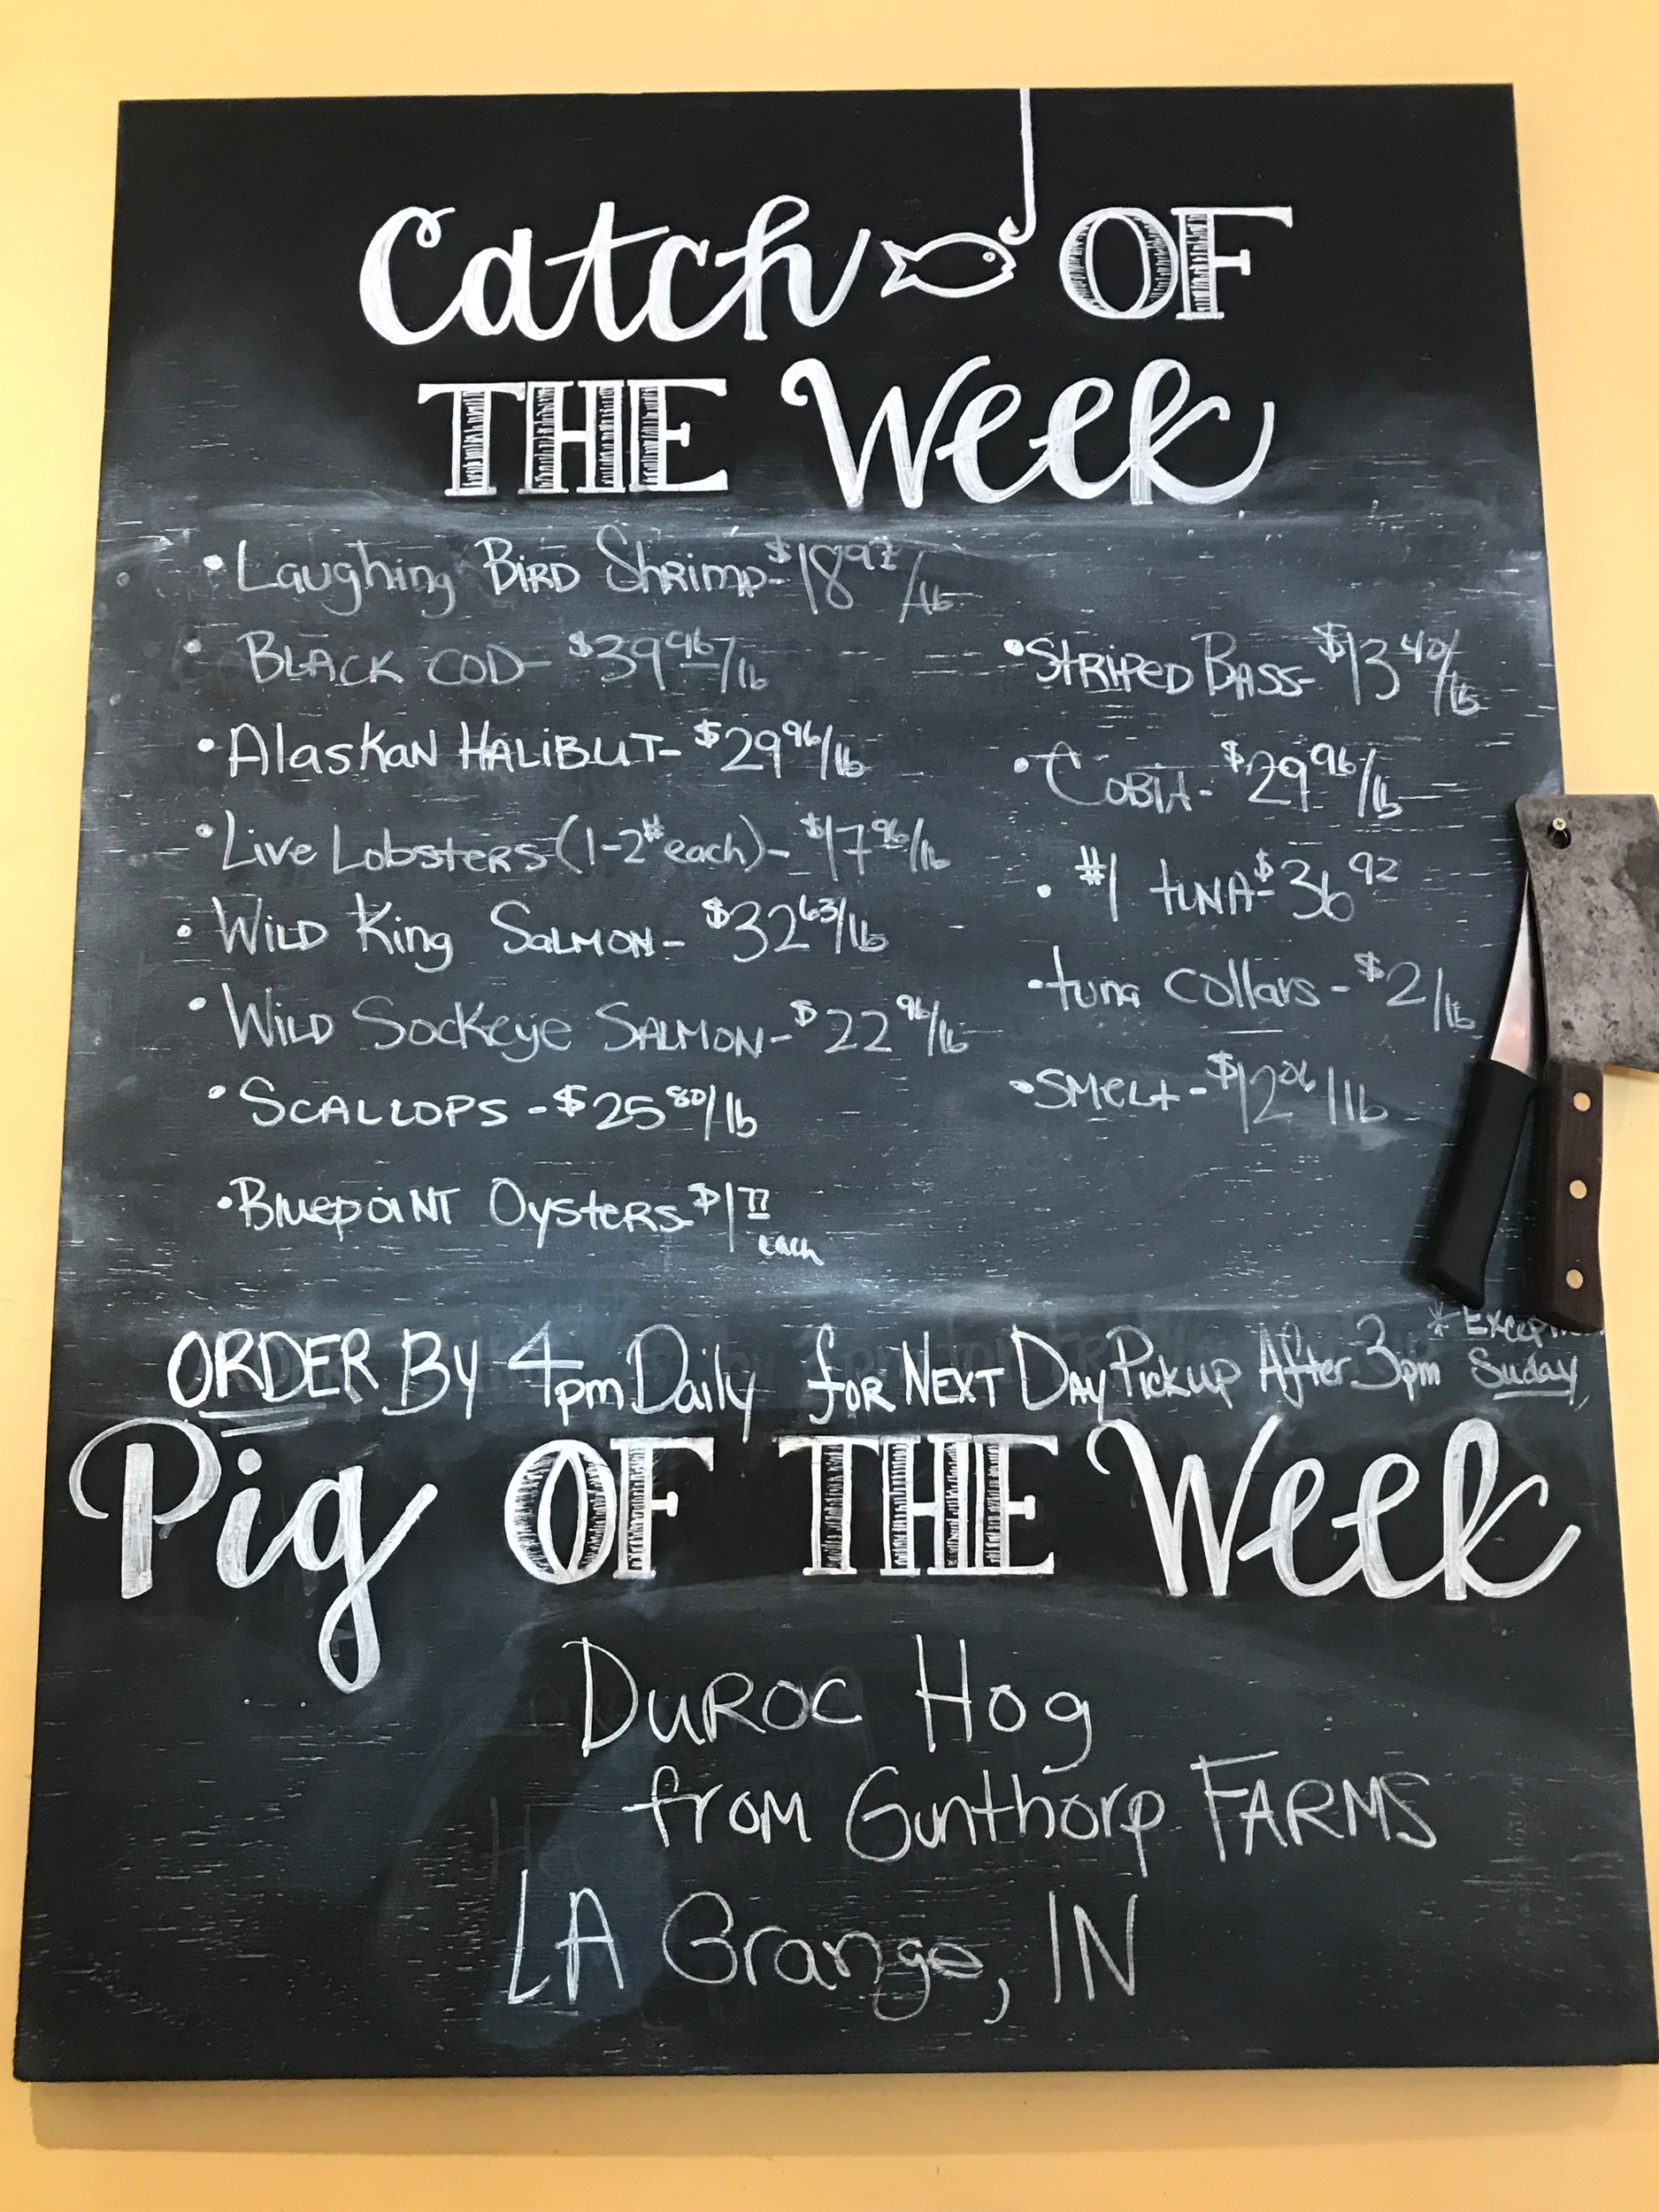 Catch OF
THE Week
• Laughing Bird Shrimp- $18.97/lb
• Black Cod- $39.96/lb
• Alaskan Halibut- $29.96/lb
• Live Lobsters (1-2# each)- $17.96/lb
• Wild King Salmon- $32.63/lb
• Wild Sockeye Salmon- $22.96/lb
• Scallops - $25.80/lb
• Bluepoint Oysters- $1.77 each
• Striped Bass- $13.40/lb
• Cobia- $29.96/lb
• #1 tuna- $36.92
• tuna collars - $2/lb
• Smelt- $12.06/lb
ORDER By 4pm Daily for Next Day Pickup After 3pm * Except Suday
Pig OF THE Week
Duroc Hog
from Gunthorp Farms
LA Grange, IN